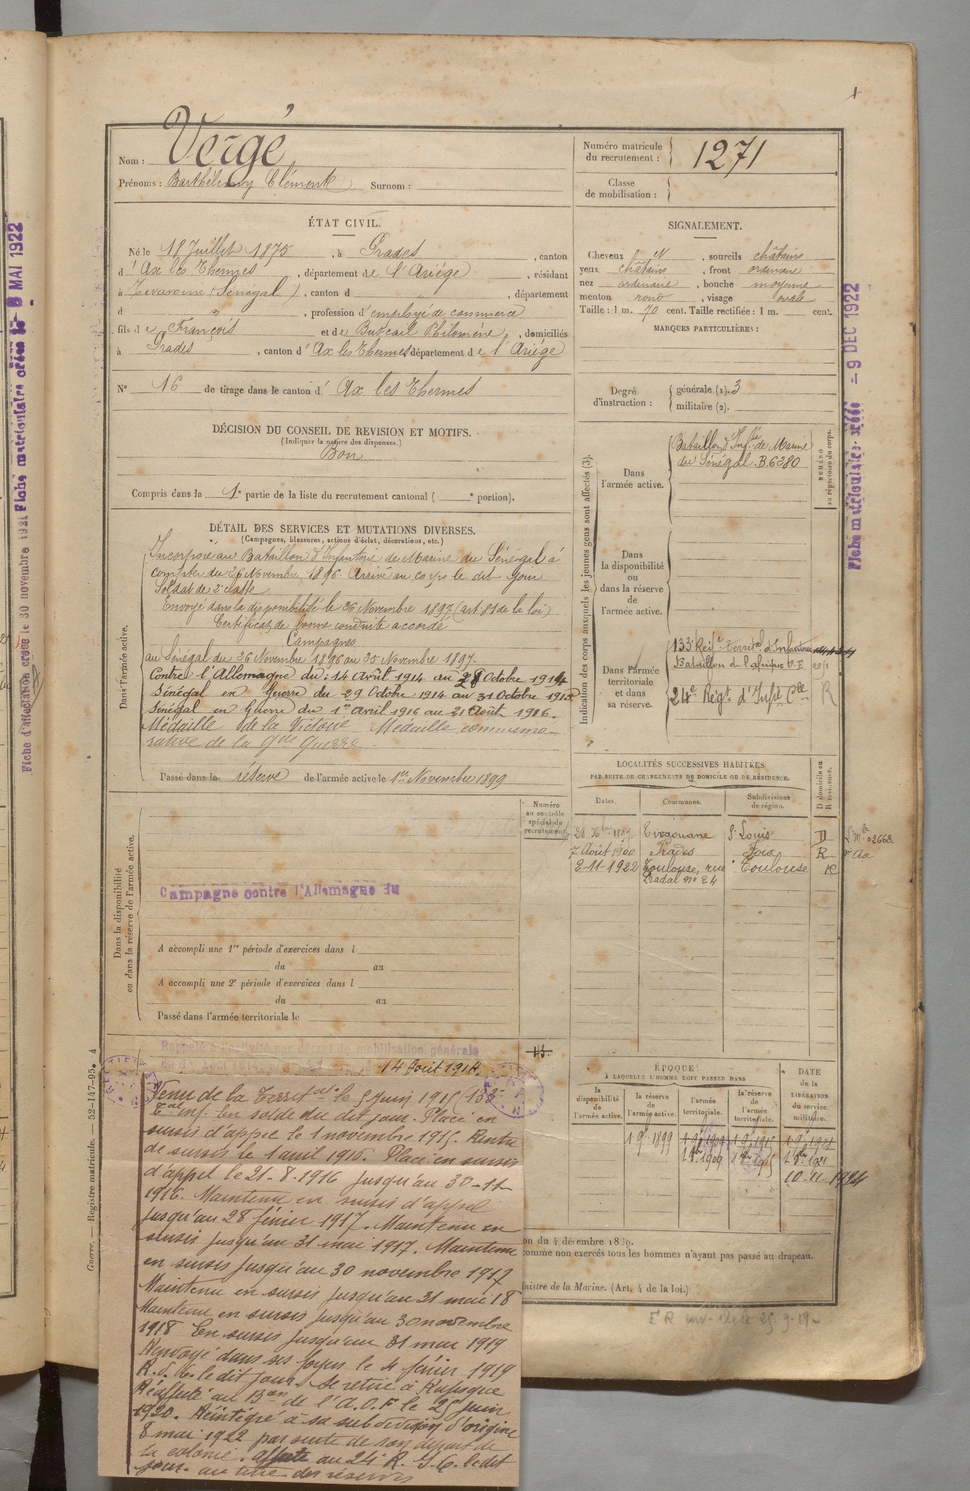 Nom : Vergé
Prénoms : Barthélemy Clément Surnom :
Numéro matricule du recrutement : 1271
Classe de mobilisation :
ÉTAT CIVIL.
Né le 18 Juillet 1875, à Prades, canton
d'Ax les Thermes, département de l'Ariège, résidant
à Tivavoine (Sénégal), canton d , département
d , profession d'employé de commerce
fils de François et de Philomène, domiciliés
à Prades, canton d'Ax les Thermes département de l'Ariége
SIGNALEMENT.
Cheveux N, sourcils châtains
yeux châtains, front ordinaire
nez ordinaire, bouche moyenne
menton rond, visage ovale
Taille : 1 m. 70 cent. Taille rectifiée : 1 m. cent.
MARQUES PARTICULIÈRES :
N° 16 de tirage dans le canton d'Ax les Thermes
Degré d'instruction : générale (1). 3
militaire (2).
DÉCISION DU CONSEIL DE REVISION ET MOTIFS.
(Indiquer la nature des dispenses.)
Bon
Compris dans la 1e partie de la liste du recrutement cantonal ( e portion).
DÉTAIL DES SERVICES ET MUTATIONS DIVERSES.
(Campagnes, blessures, actions d'éclat, décorations, etc.)
Dans l'armée active.
Incorporé au Bataillon d'Infanterie de Marine du Sénégal à
compter du 26 Novembre 1896 Arrivé au corps le dit jour
Soldat de 2e classe
Envoyé dans la disponibilité le 26 Novembre 1897 (art. 81 de la loi)
Certificat de bonne conduite accordé
Campagnes
au Sénégal du 26 Novembre 1896 au 25 Novembre 1897.
Contre l'Allemagne du : 14 Avril 1914 au 28 Octobre 1914
Sénégal en Guerre du 29 Octobre 1914 au 31 Octobre 1915
Sénégal en Guerre du 1er Avril 1916 au 21 Août 1916.
Médaille de la Victoire Médaille commémo-
rative de la Gde Guerre
Passé dans la réserve de l'armée active le 1er Novembre 1899
Indication des corps auxquels les jeunes gens sont affectés (3).
NUMÉRO au répertoire du corps.
Dans l'armée active.
Bataillon d'Infrie de Marine
du Sénégal B.6280
Dans la disponibilité ou dans la réserve de l'armée active.
Dans l'armée territoriale et dans sa réserve.
133e Régt Territal d'Infanterie
Bataillon de l'Afrique O.F.
24e Régt d'Infie Cle
LOCALITÉS SUCCESSIVES HABITÉES
PAR SUITE DE CHANGEMENTS DE DOMICILE OU DE RÉSIDENCE.
Dates. Communes. Subdivisions de région. D domicile ou R résidence.
Tivaouane St Louis D
7 Août 1900 Prades Foix R
2-11-1922 Toulouse, rue Toulouse R
Numéro au contrôle spécial du recrutement.
Dans la disponibilité ou dans la réserve de l'armée active.
Campagne contre l'Allemagne du
A accompli une 1re période d'exercices dans l
du au
A accompli une 2e période d'exercices dans l
du au
Passé dans l'armée territoriale le
Rappelé à l'activité par décret de mobilisation générale
14 Août 1914.
Venu de la Territle le 5 juin 1915 (133e
Tal inf. En solde du dit jour. Placé en
sursis d'appel le 1 novembre 1915. Rentre
de sursis le 1 avril 1916. Placé en sursis
d'appel le 21-8-1916 jusqu'au 30-11-
1916. Maintenu en sursis d'appel
jusqu'au 28 février 1917. Maintenu en
sursis jusqu'au 31 mai 1917. Maintenu
en sursis jusqu'au 30 novembre 1917
Maintenu en sursis jusqu'au 31 mai 18
Maintenu en sursis jusqu'au 30 novembre
1918 En sursis jusqu'au 31 mai 1919
Renvoyé dans ses foyers le 4 février 1919
le dit jour. Se retire à Rufisque
Réaffecté au Bon de l'A.O.F le 25 juin
1920. Réintégré à sa subdivision d'origine
8 mai 1922 par suite de son départ de
la colonie. Affecté au 24e R. I. C. le dit
jour. au titre des réserves
ÉPOQUE
À LAQUELLE L'HOMME DOIT PASSER DANS
la disponibilité de l'armée active.
la réserve de l'armée active.
l'armée territoriale.
la réserve de l'armée territoriale.
DATE de la LIBÉRATION du service militaire.
1 9bre 1899 1 9bre 1909 1 9bre 1915
10 11 1924
on du 4 décembre 1889.
comme non exercés tous les hommes n'ayant pas passé au drapeau.
nistre de la Marine. (Art. 4 de la loi.)
Guerre. — Registre matricule. — 52-147-95. 4
Fiche matriculaire créée le 9 DEC 1922
Fiche matriculaire créée le 8 MAI 1922
Fiche d'affectation créée le 30 novembre 1921